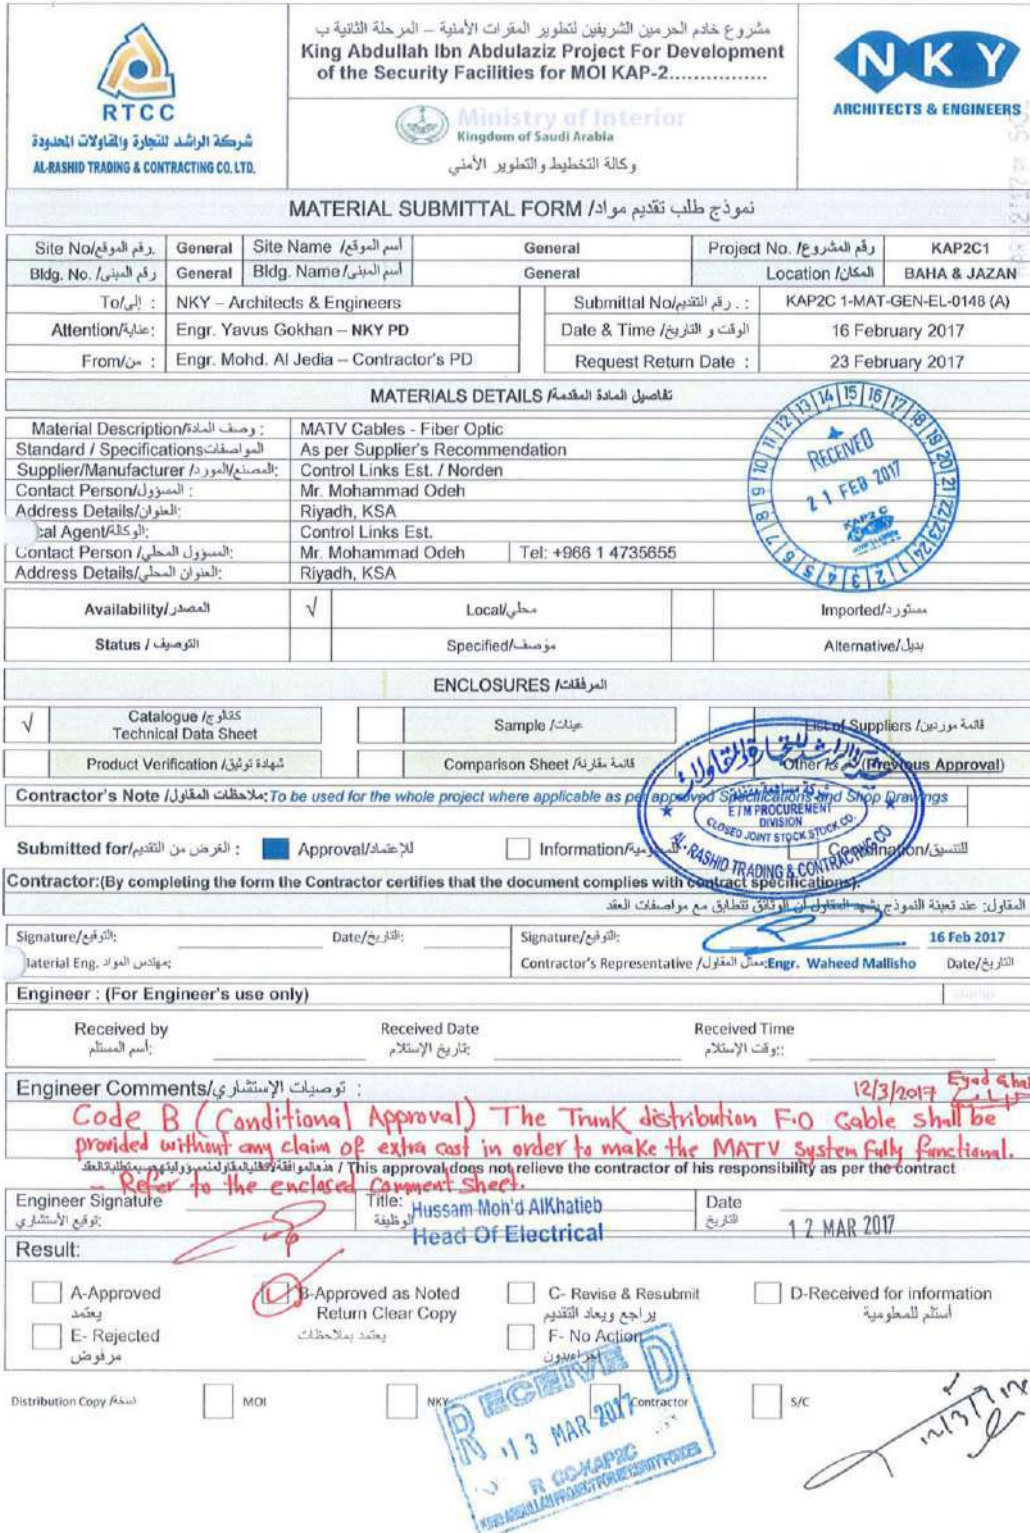 RTCC
شركة الراشد للتجارة والمقاولات المحدودة
AL-RASHID TRADING & CONTRACTING CO. LTD.
مشروع خادم الحرمين الشريفين لتطوير المقرات الأمنية – المرحلة الثانية ب
King Abdullah Ibn Abdulaziz Project For Development
of the Security Facilities for MOI KAP-2................
Ministry of Interior
Kingdom of Saudi Arabia
وكالة التخطيط والتطوير الأمني
NKY
ARCHITECTS & ENGINEERS
MATERIAL SUBMITTAL FORM /نموذج طلب تقديم مواد
Site No/رقم الموقع. General Site Name /أسم الموقع General Project No. /رقم المشروع KAP2C1
Bldg. No. /رقم المبنى General Bldg. Name/أسم المبنى General Location /المكان BAHA & JAZAN
To/إلى : NKY – Architects & Engineers Submittal No/رقم التقديم . : KAP2C 1-MAT-GEN-EL-0148 (A)
Attention/عناية: Engr. Yavus Gokhan – NKY PD Date & Time /الوقت و التاريخ 16 February 2017
From/من : Engr. Mohd. Al Jedia – Contractor's PD Request Return Date : 23 February 2017
MATERIALS DETAILS /تفاصيل المادة المقدمة
Material Description/وصف المادة : MATV Cables - Fiber Optic
Standard / Specifications المواصفات As per Supplier's Recommendation
Supplier/Manufacturer /المصنع/المورد: Control Links Est. / Norden
Contact Person/المسؤول : Mr. Mohammad Odeh
Address Details/العنوان: Riyadh, KSA
cal Agent/الوكالة: Control Links Est.
Contact Person /المسوول المحلي: Mr. Mohammad Odeh Tel: +966 1 4735655
Address Details/العنوان المحلي: Riyadh, KSA
RECEIVED
21 FEB 2017
KAP2 C
Availability/المصدر √ Local/محلي Imported/مستورد
Status / التوصيف Specified/مؤصف Alternative/بديل
ENCLOSURES /المرفقات
√ Catalogue /كتالوج
Technical Data Sheet
Sample /عينات
List of Suppliers /قائمة موردين
Product Verification /شهادة توثيق Comparison Sheet /قائمة مقارنة Other / (Previous Approval)
Contractor's Note /ملاحظات المقاول: To be used for the whole project where applicable as per approved Specifications and Shop Drawings
E/M PROCUREMENT
DIVISION
CLOSED JOINT STOCK STOCK CO.
AL-RASHID TRADING & CONTRACTING CO
Submitted for/الغرض من التقديم : Approval/للإعتماد Information/ Coordination/للتنسيق
Contractor:(By completing the form the Contractor certifies that the document complies with contract specifications).
المقاول: عند تعبئة النموذج يشهد المقاول أن الوثائق تتطابق مع مواصفات العقد
Signature/التوقيع: Date/التاريخ: Signature/التوقيع: 16 Feb 2017
laterial Eng. مهندس المواد: Contractor's Representative /ممثل المقاول:Engr. Waheed Mallisho Date/التاريخ
Engineer : (For Engineer's use only)
Received by Received Date Received Time
أسم المستلم: تاريخ الإستلام: وقت الإستلام::
Engineer Comments/توصيات الإستشاري :
12/3/2017
Code B (Conditional Approval) The Trunk distribution F.O Cable shall be
provided without any claim of extra cost in order to make the MATV system fully functional.
/ This approval does not relieve the contractor of his responsibility as per the contract
- Refer to the enclosed comment sheet.
Engineer Signature
توقيع الأستشاري
Title: Hussam Moh'd AlKhatieb
الوظيفة
Head Of Electrical
Date
التاريخ
12 MAR 2017
Result:
A-Approved
يعتمد
B-Approved as Noted
Return Clear Copy
يعتمد بملاحظات
C- Revise & Resubmit
يراجع ويعاد التقديم
D-Received for information
أستلم للمعلومية
E- Rejected
مرفوض
F- No Action
Distribution Copy /نسخة MOI NKY Contractor S/C
RECEIVED
13 MAR 2017
KING ABDULLAH PROJECT FOR SECURITY FORCES
12/3/17